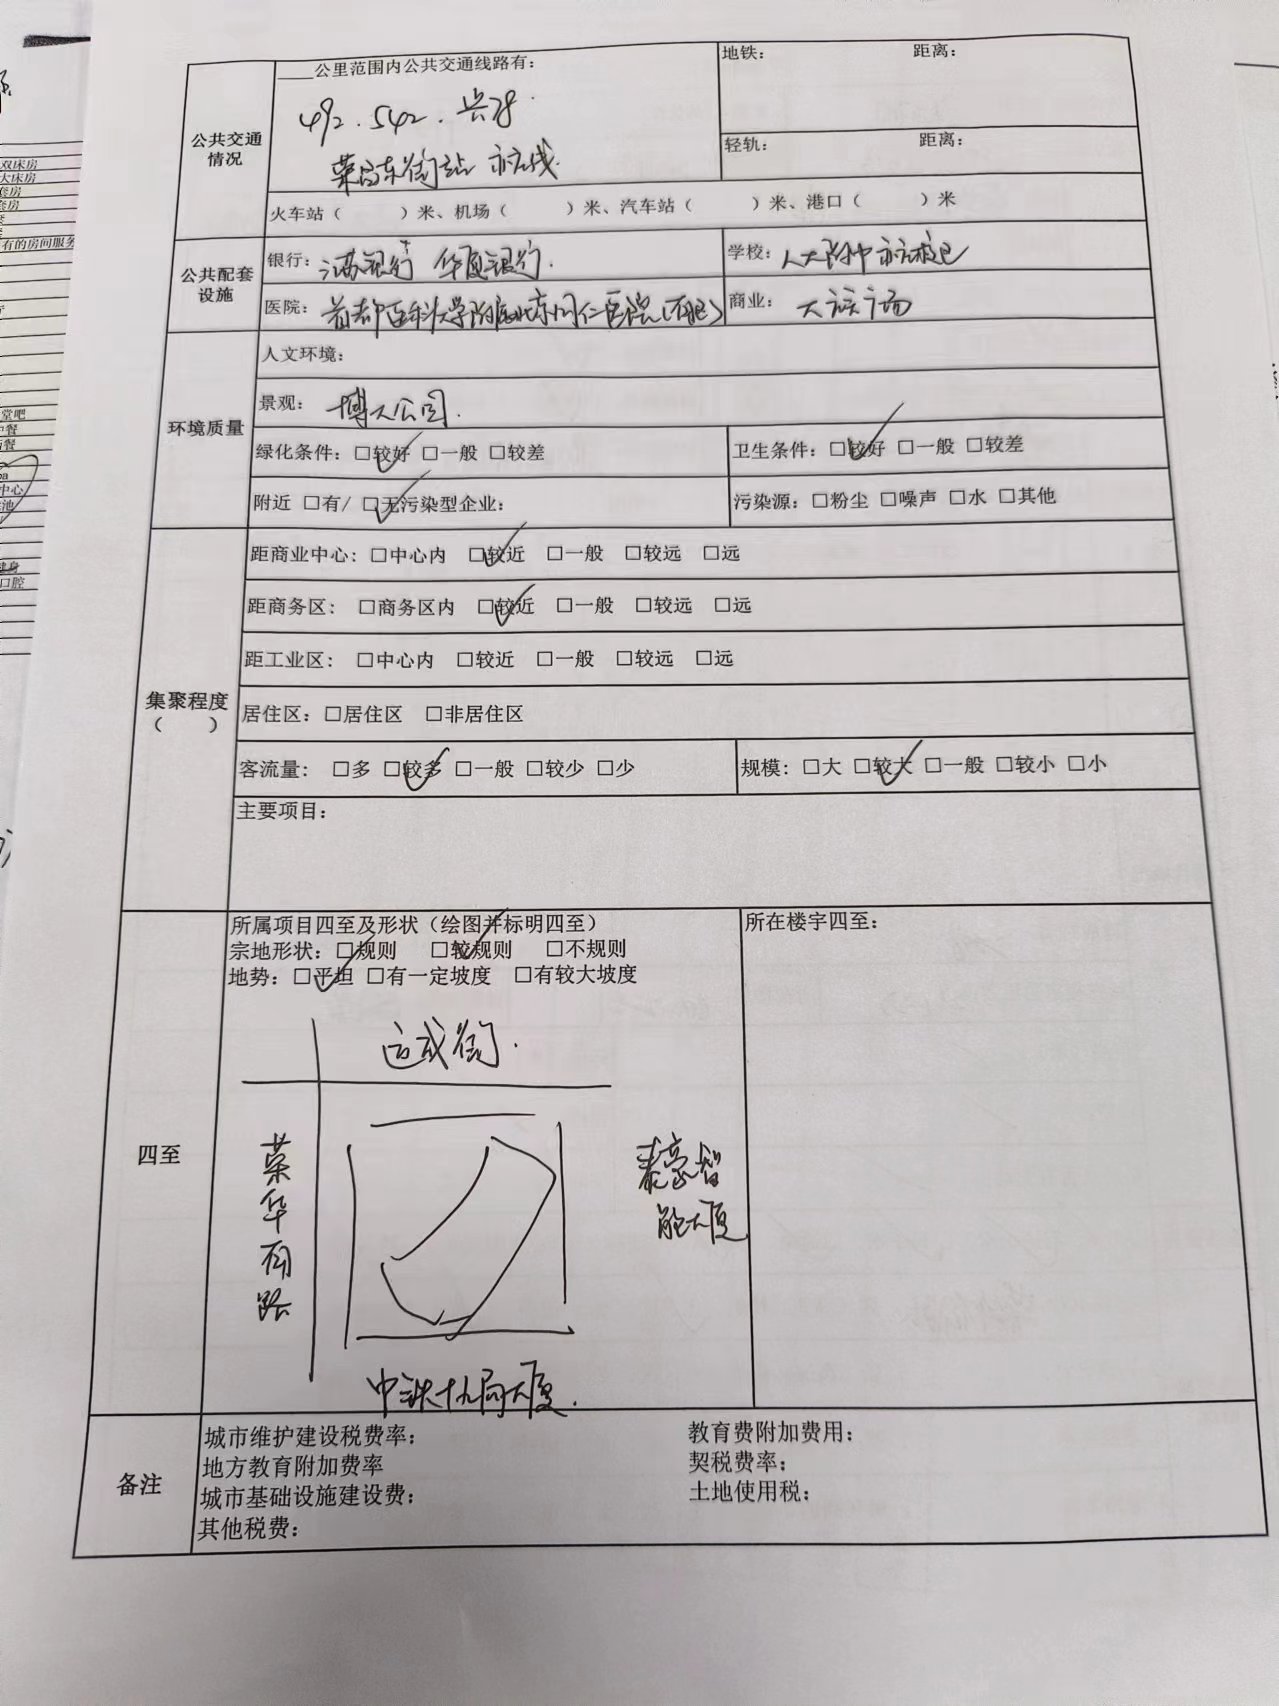 ____公里范围内公共交通线路有：
地铁： 距离：
492. 542. 兴28.
荣昌东街站 亦庄线
公共交通情况
轻轨： 距离：
火车站（ ）米、机场（ ）米、汽车站（ ）米、港口（ ）米
公共配套设施
银行：江苏银行 华夏银行.
学校：人大附中亦庄校区
医院：首都医科大学附属北京同仁医院(南区)
商业：大族广场
人文环境：
环境质量
景观：博大公园.
绿化条件：□较好 □一般 □较差
卫生条件：□较好 □一般 □较差
附近 □有/ □无污染型企业：
污染源：□粉尘 □噪声 □水 □其他
距商业中心：□中心内 □较近 □一般 □较远 □远
距商务区：□商务区内 □较近 □一般 □较远 □远
距工业区：□中心内 □较近 □一般 □较远 □远
集聚程度
（ ）
居住区：□居住区 □非居住区
客流量：□多 □较多 □一般 □较少 □少
规模：□大 □较大 □一般 □较小 □小
主要项目：
所属项目四至及形状（绘图并标明四至）
所在楼宇四至：
宗地形状：□规则 □较规则 □不规则
地势：□平坦 □有一定坡度 □有较大坡度
四至
运成街.
荣华南路
泰豪智
能大厦
中铁十九局大厦.
备注
城市维护建设税费率：
教育费附加费用：
地方教育附加费率
契税费率：
城市基础设施建设费：
土地使用税：
其他税费：
双床房
大床房
套房
套房
有的房间服务
堂吧
中餐
中心
池
健身
口腔